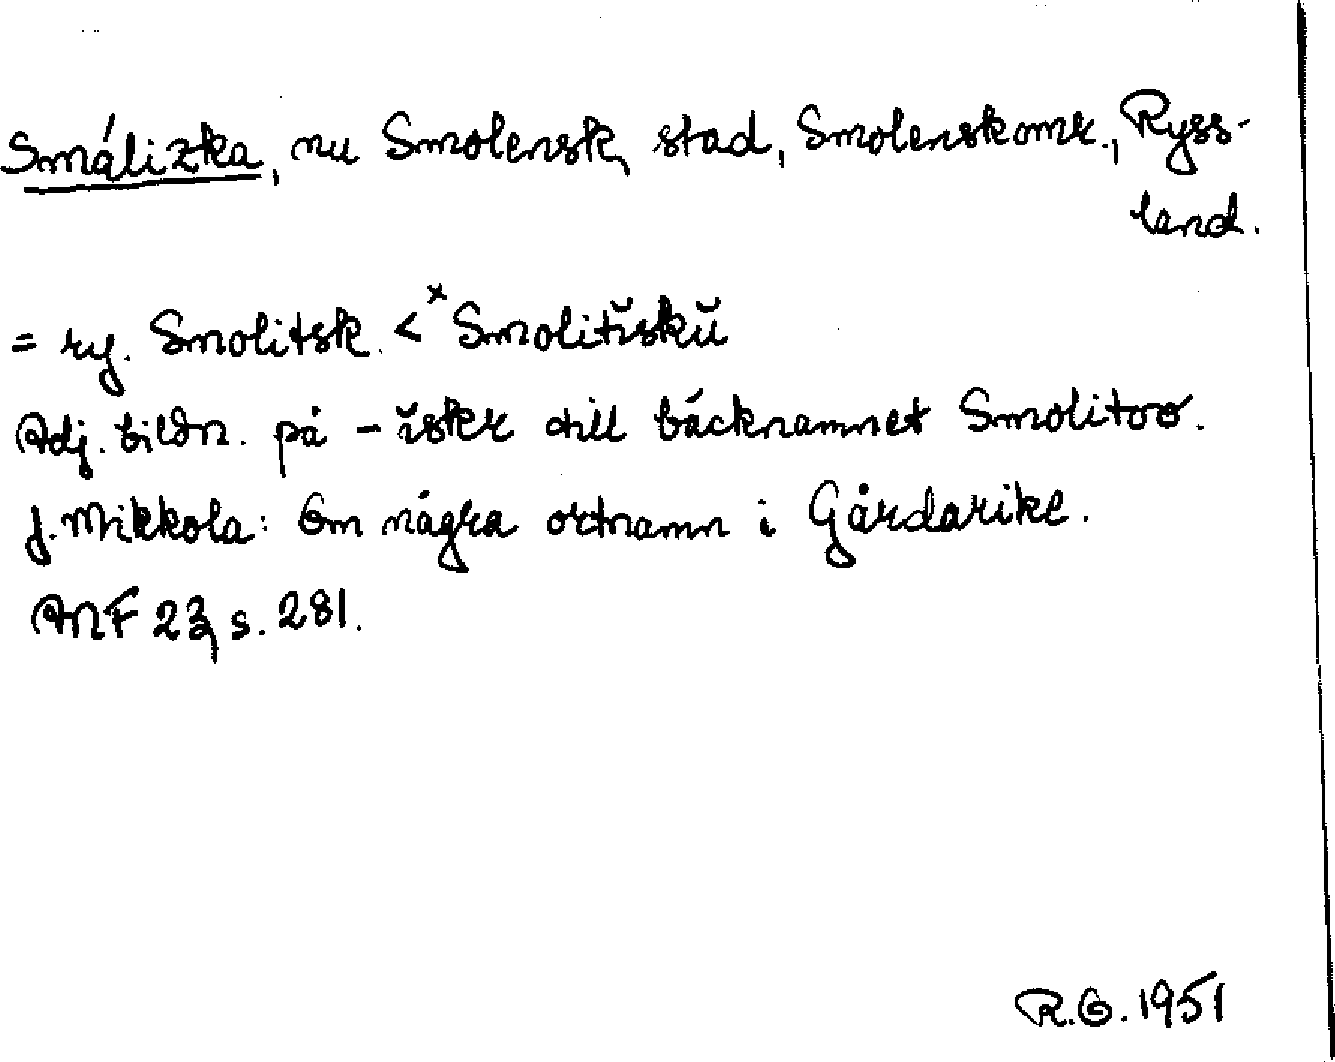 Smálizka, nu Smolensk, stad, Smolenskomr., Ryss-
land.
= ry. Smolitsk. < ˣSmolitĭskŭ
Adj. bildn. på -ĭsker till bäcknamnet Smolitoo.
J. Mikkola: Om några ortnamn i Gårdarike.
ANF 23, s. 281.
R.G. 1951